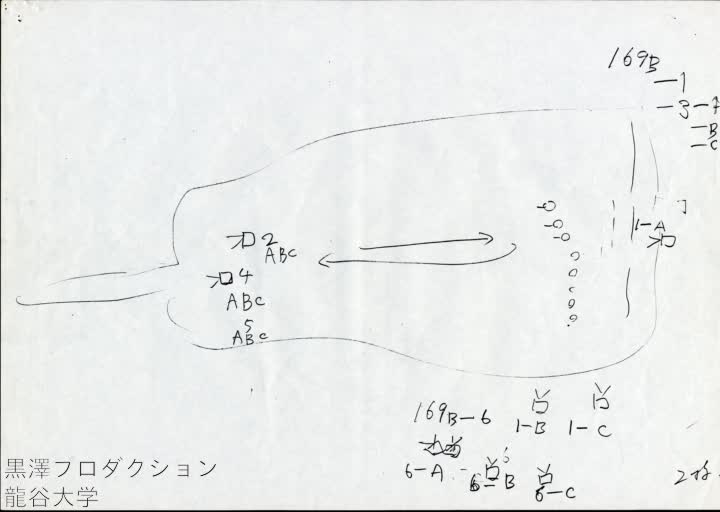 169B
—1
—3—A
—B
—C
1—A
2
ABC
4
ABC
5
ABC
169B—6
1—B
1—C
6—A
6—B
6—C
黒澤フロダクション
龍谷大学